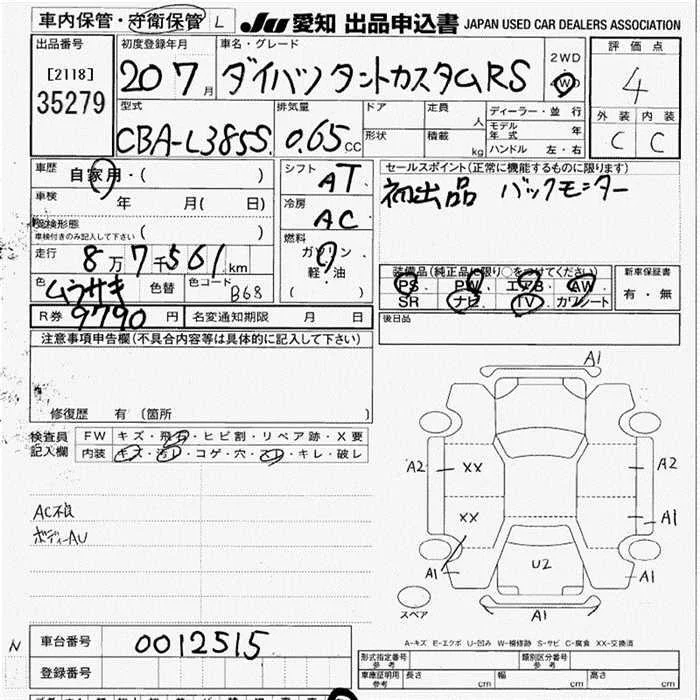 車内保管・守衛保管 L JU 愛知 出品申込書 JAPAN USED CAR DEALERS ASSOCIATION
出品番号
[2118]
35279
初度登録年月
20 7月
車名・グレード
ダイハツ タントカスタムRS
2WD
4WD
評価点
4
外装 内装
C C
型式
CBA-L385S
排気量
0.65CC
ドア
形状
定員 人
積載 kg
ディーラー・並行
モデル年式 年
ハンドル 左・右
車歴
自家用・( )
車検 年 月( 日)
受検形態
車検付きのみ記入して下さい ( )
走行 8万7千561km
色 ムラサキ 色替 色コード B68
R券 9790円 名変通知期限 月 日
シフト
AT
冷房
AC
燃料
ガソリン
軽・油
( )
セールスポイント(正常に機能するものに限ります)
初出品 バックモニター
装備品(純正品に限り○をつけてください)
PS・PW・エアB・AW
SR・ナビ・TV・カワシート
新車保証書
有・無
後日品
注意事項申告欄(不具合内容等は具体的に記入して下さい)
修復歴 有〔箇所 〕
検査員記入欄
FW キズ・飛石・ヒビ割・リペア跡・X要
内装 キズ・汚レ・コゲ・穴・スレ・キレ・破レ
AC不良
ボディーAU
A1
A2 XX A2
XX A1
A1 U2 A1
スペア A1
A-キズ E-エクボ U-凹み W-補修跡 S-サビ C-腐食 XX-交換済
N
車台番号 0012515
登録番号
型式指定番号
参考
類別区分番号
参考
車庫証明用
参考
長さ cm 幅 cm 高さ cm